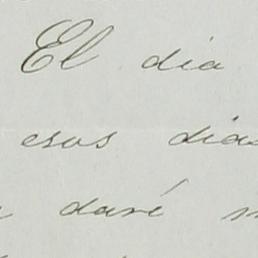 El dia
esos dias
daré